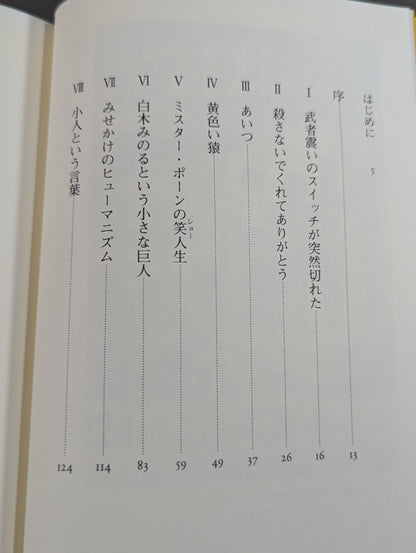 はじめに 5
序 13
Ⅰ 武者震いのスイッチが突然切れた 16
Ⅱ 殺さないでくれてありがとう 26
Ⅲ あいつ 37
Ⅳ 黄色い猿 49
Ⅴ ミスター・ポーンの笑人生 ショー 59
Ⅵ 白木みのるという小さな巨人 83
Ⅶ みせかけのヒューマニズム 114
Ⅷ 小人という言葉 124